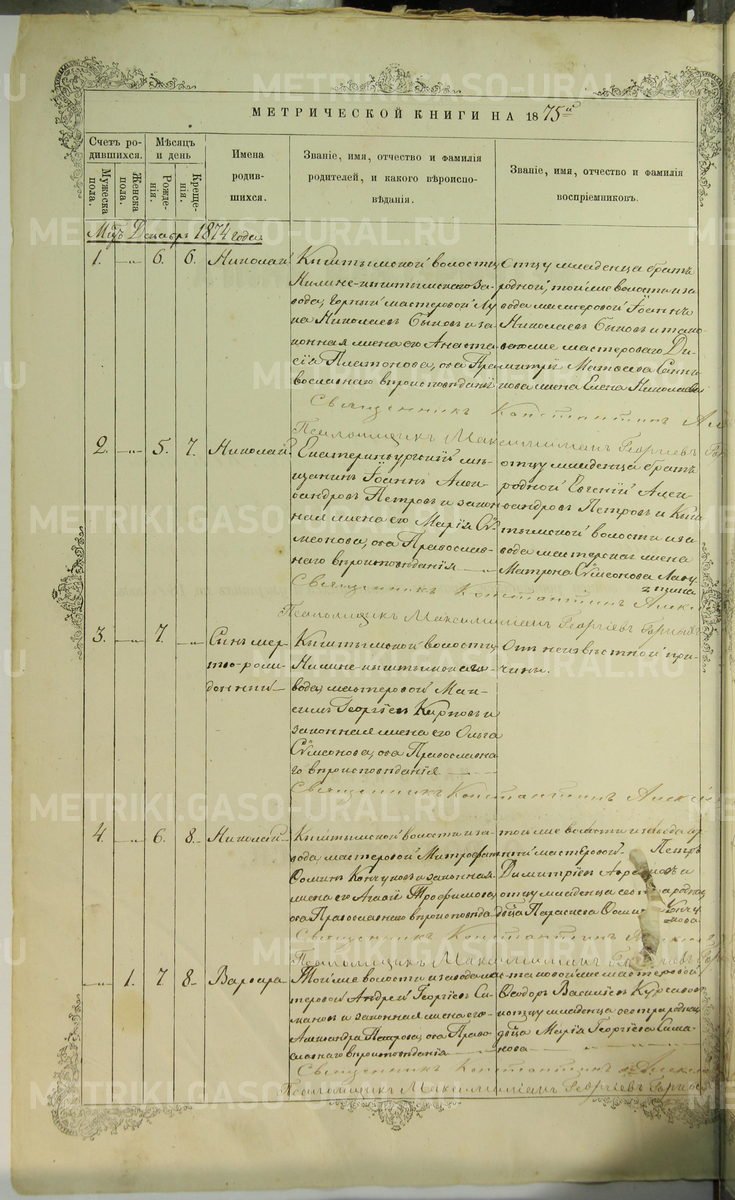 METRIKI.GASO-URAL.RU
МЕТРИЧЕСКОЙ КНИГИ НА 1875й
Счетъ родившихся.
Мужеска пола.
Женска пола.
Мѣсяцъ и день
Рожденія.
Крещенія.
Имена родившихся.
Званіе, имя, отчество и фамилія родителей, и какого вѣроисповѣданія.
Званіе, имя, отчество и фамилія воспріемниковъ.
Мцъ Декабрь 1874 года.
1. — 6. 6. Николай
Кыштымской волости
Нижне-кыштымскаго за-
вода, горный мастеровой Лу-
ка Николаевъ Быковъ и за-
конная жена его Анаста-
сія Платонова, оба Пра-
вославнаго вѣроисповѣданія
Отцу младенца братъ
родной, той же волости и за-
вода мастеровой Іоаннъ
Николаевъ Быковъ и тако-
ваго же мастероваго Ди-
митрія Матвѣева
жена Елена Николаева
Священникъ Константинъ
Псаломщикъ Максимиліанъ Георгіевъ
2. — 5. 7. Николай
Екатеринбургскій мѣ-
щанинъ Іоаннъ Алек-
сандровъ Петровъ и закон-
ная жена его Марія Сѵ-
меонова, оба Православ-
наго вѣроисповѣданія
отцу младенца братъ
родной Евгеній Алек-
сандровъ Петровъ и Кыш-
тымской волости и за-
вода мастерская жена
Матрона Сѵмеонова
Священникъ Константинъ
Псаломщикъ Максимиліанъ Георгіевъ
3. — 7. —
Сынъ мер-
творож-
денный
Кыштымской волости
Нижне-кыштымскаго за-
вода, мастеровой Мак-
симъ Георгіевъ Карповъ и
законная жена его Ольга
Сѵмеонова, оба Православна-
го вѣроисповѣданія
Отъ неизвѣстной при-
чины.
Священникъ Константинъ
4. — 6. 8. Николай
Кыштымской волости и за-
вода, мастеровой Митрофанъ
Ѳоминъ и законная
жена его Трофимова,
оба Православнаго вѣроисповѣда
той же волости и завода
мастеровой Петръ
Димитріевъ и
отцу младенца сестра родная,
дѣвица Параскева
Священникъ Константинъ
Псаломщикъ Максимиліанъ
— 1. 7. 8. Варвара
Той же волости и завода ма-
стеровой Андрей Георгіевъ Си-
мановъ и законная жена его
Александра Петрова, оба Право-
славнаго вѣроисповѣданія
таковой же мастеровой
Ѳеодоръ Василіевъ
и отцу младенца сестра родная,
дѣвица Марія Георгіева Сима-
нова
Священникъ Константинъ
Псаломщикъ Максимиліанъ Георгіевъ